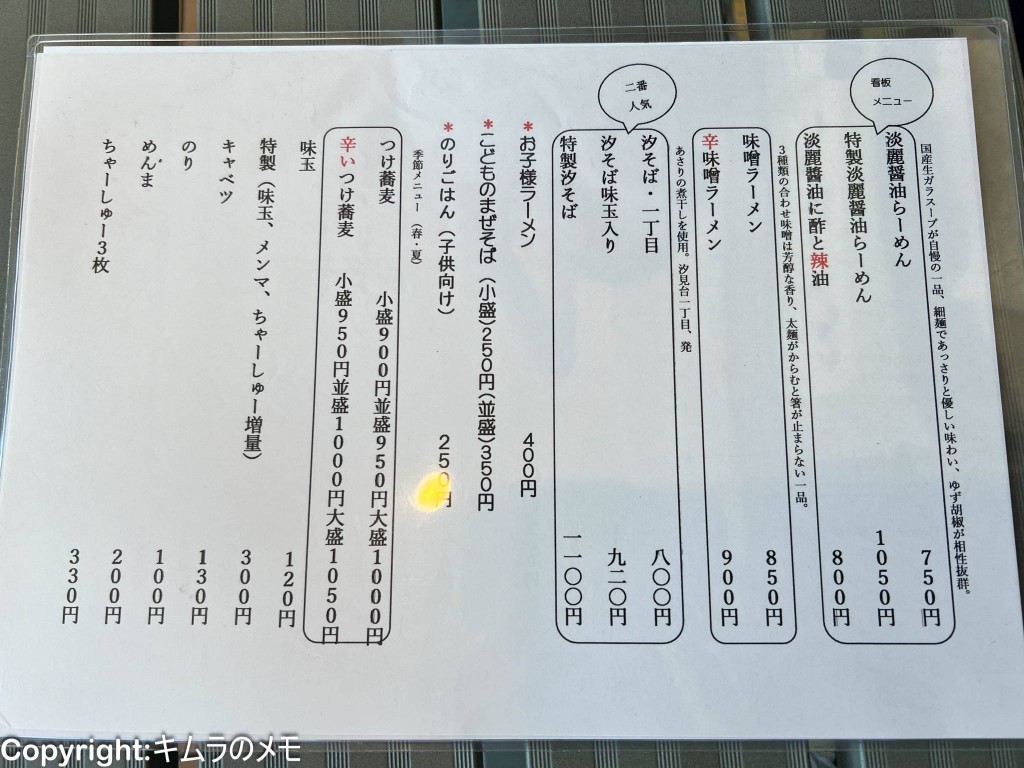 看板
メニュー
国産生ガラスープが自慢の一品、細麺であっさりと優しい味わい、ゆず胡椒が相性抜群。
淡麗醤油らーめん 750円
特製淡麗醤油らーめん 1050円
淡麗醤油に酢と辣油 800円
3種類の合わせ味噌は芳醇な香り、太麺がからむと箸が止まらない一品。
味噌ラーメン 850円
辛味噌ラーメン 900円
二番
人気
あさりの煮干しを使用。汐見台一丁目、発
汐そば・一丁目 八〇〇円
汐そば味玉入り 九二〇円
特製汐そば 一一〇〇円
*お子様ラーメン 400円
*こどものまぜそば(小盛)250円(並盛)350円
*のりごはん(子供向け) 250円
季節メニュー(春・夏)
つけ蕎麦 小盛900円並盛950円大盛1000円
辛いつけ蕎麦 小盛950円並盛1000円大盛1050円
味玉 120円
特製(味玉、メンマ、ちゃーしゅー増量) 300円
キャベツ 130円
のり 100円
めんま 200円
ちゃーしゅー3枚 330円
Copyright:キムラのメモ